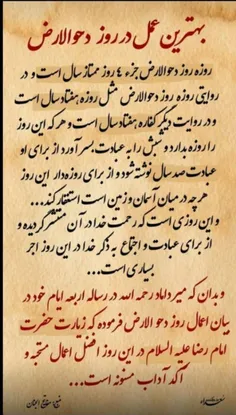 بهترین عمل در روز دحوالارض
روزه روز دحوالارض جزء ٤ روز ممتاز سال است و در
روایتی روزه روز دحوالارض مثل روزه هفتاد سال است
و در روایت دیگر کفاره هفتاد سال است و هر که این روز
را روزه بدارد و شبش را به عبادت بسر آورد از برای او
عبادت صد سال نوشته شود و از برای روزه دار این روز
هر چه در میان آسمان و زمین است استغفار کند...
و این روزی است که رحمت خدا در آن منتشر گردیده و
از برای عبادت و اجتماع به ذکر خدا در این روز اجر
بسیاری است...
و بدان که میرداماد رحمه الله در رساله اربعه ایام خود در
بیان اعمال روز دحو الارض فرموده که زیارت حضرت
امام رضا علیه السلام در این روز افضل اعمال مستحبه و
آکد آداب مسنونه است...
منبع: مفاتیح الجنان